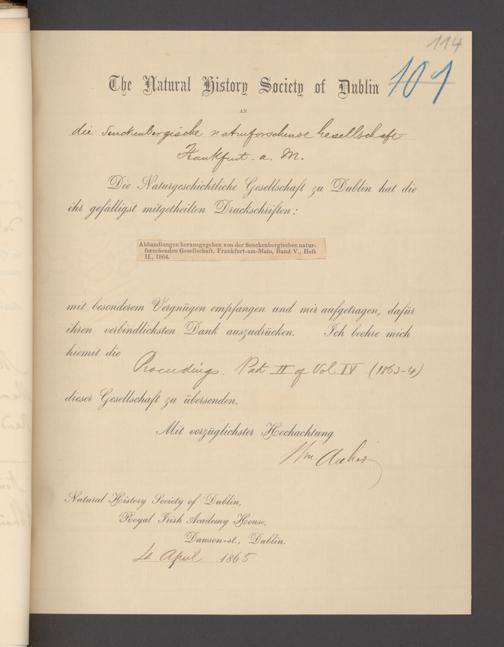 114
107
The Natural History Society of Dublin
AN
die Senckenbergische naturforschende Gesellschaft
Frankfurt a. M.
Die Naturgeschichtliche Gesellschaft zu Dublin hat die
ihr gefälligst mitgetheilten Druckschriften:
Abhandlungen herausgegeben von der Senckenbergischen natur-
forschenden Gesellschaft, Frankfurt-am-Main, Band V., Heft
II., 1864.
mit besonderem Vergnügen empfangen und mir aufgetragen, dafür
ihren verbindlichsten Dank auszudrücken. Ich beehre mich
hiemit die
Proceedings. Part II of Vol. IV (1863-4)
dieser Gesellschaft zu übersenden.
Mit vorzüglichster Hochachtung
Wm
Natural History Society of Dublin,
Royal Irish Academy House,
Dawson-st., Dublin.
April 1865